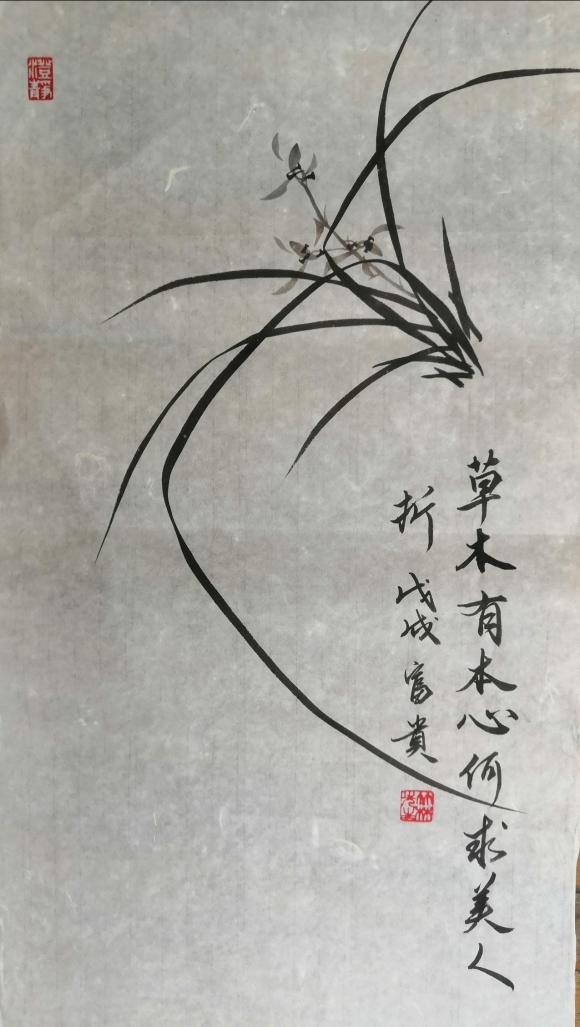 草木有本心何求美人
折 戊戌 富貴
澄静